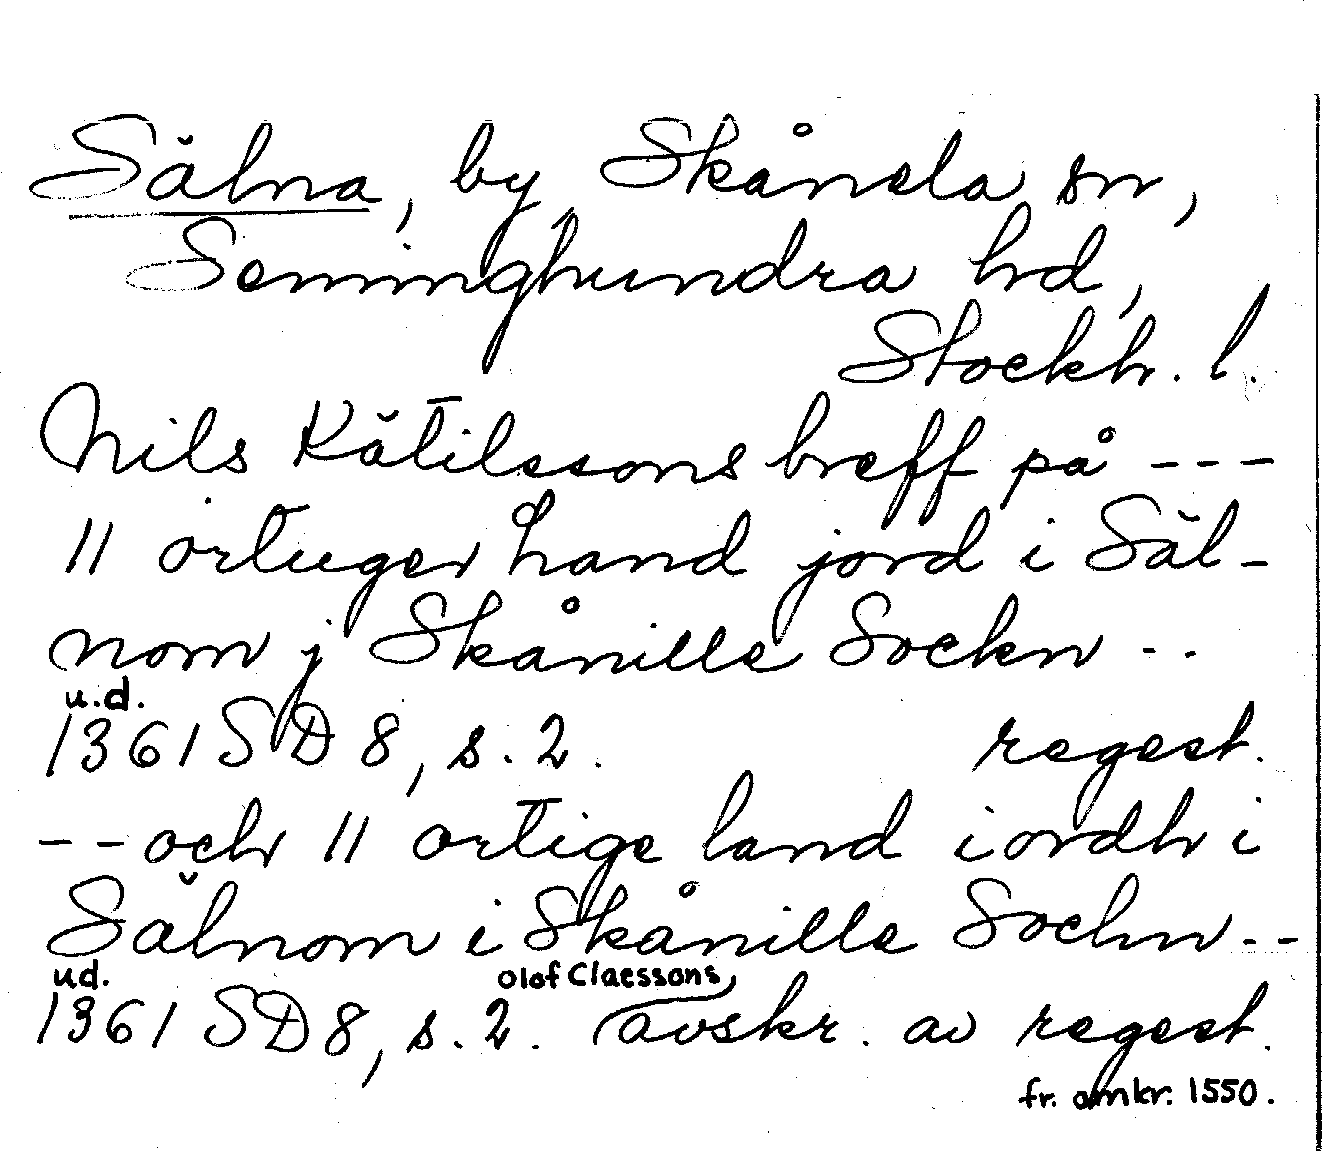 Sälna, by Skånela sn,
Seminghundra hd,
Stockh. l.
Nils Kätilssons breff på ---
11 ortuger land jord i Säl-
nom j Skånille Sockn --
u.d.
1361 SD 8, s. 2. regest.
-- och 11 ortige land iordh i
Sälnom i Skånille Sochn --
u.d. Olof Claessons
1361 SD 8, s. 2. avskr. av regest.
fr. omkr. 1550.